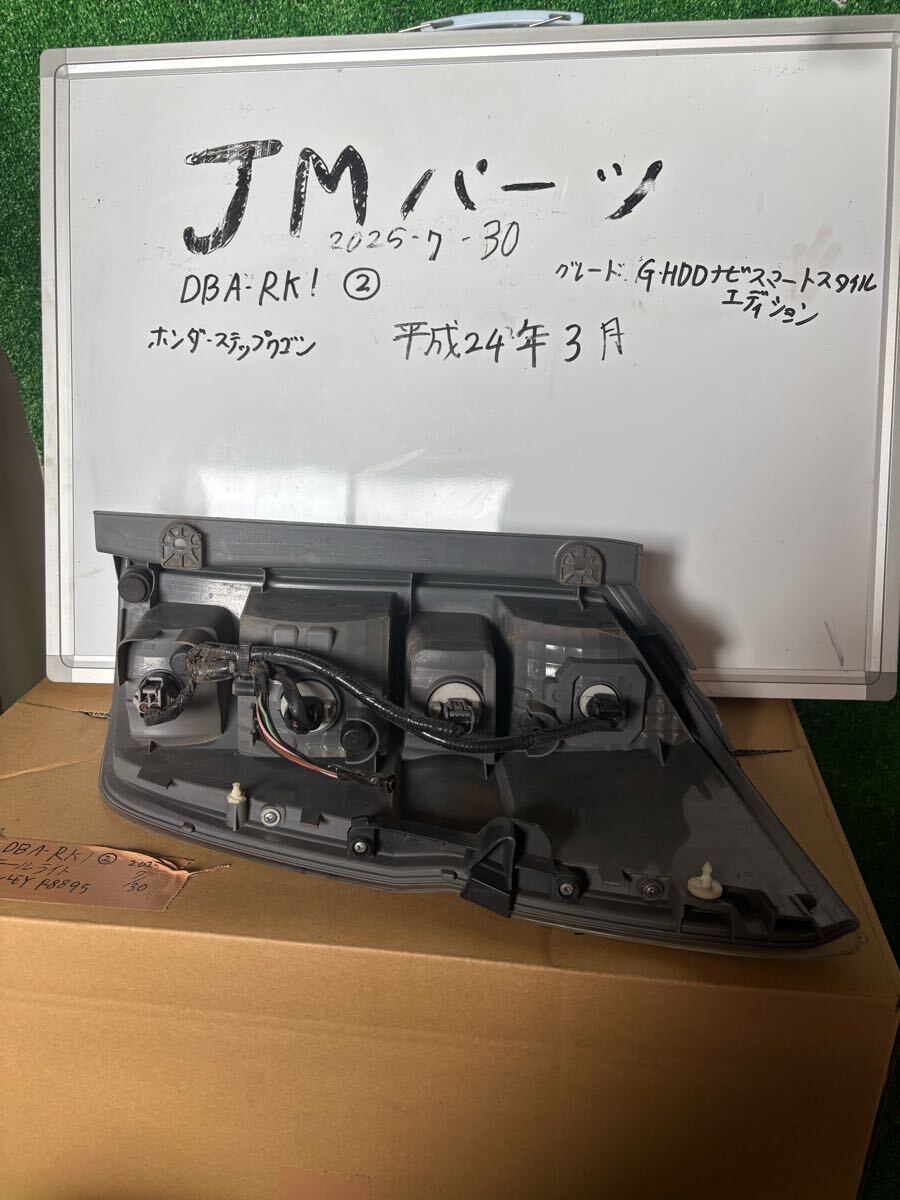 JMパーツ
2025-7-30
DBA-RK1 ②
グレード:G・HDDナビスマートスタイル
エディション
ホンダ・ステップワゴン
平成24年3月
DBA-RK1 ② 2025
テールライト 7/30
P8895